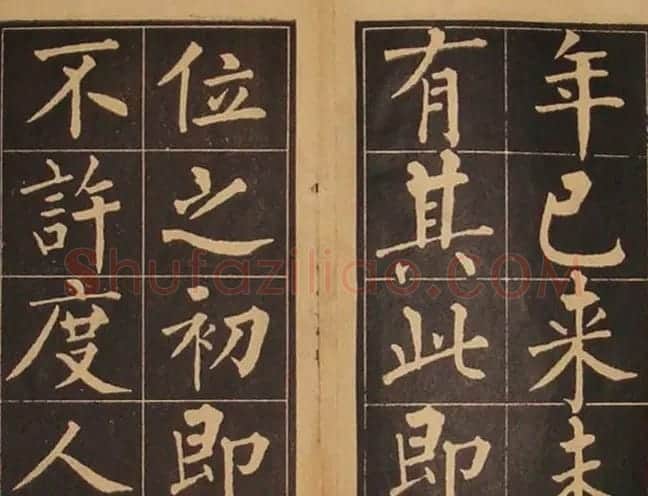 年已来未
有其此即
位之初即
不许度人
Shufaziliao.COM